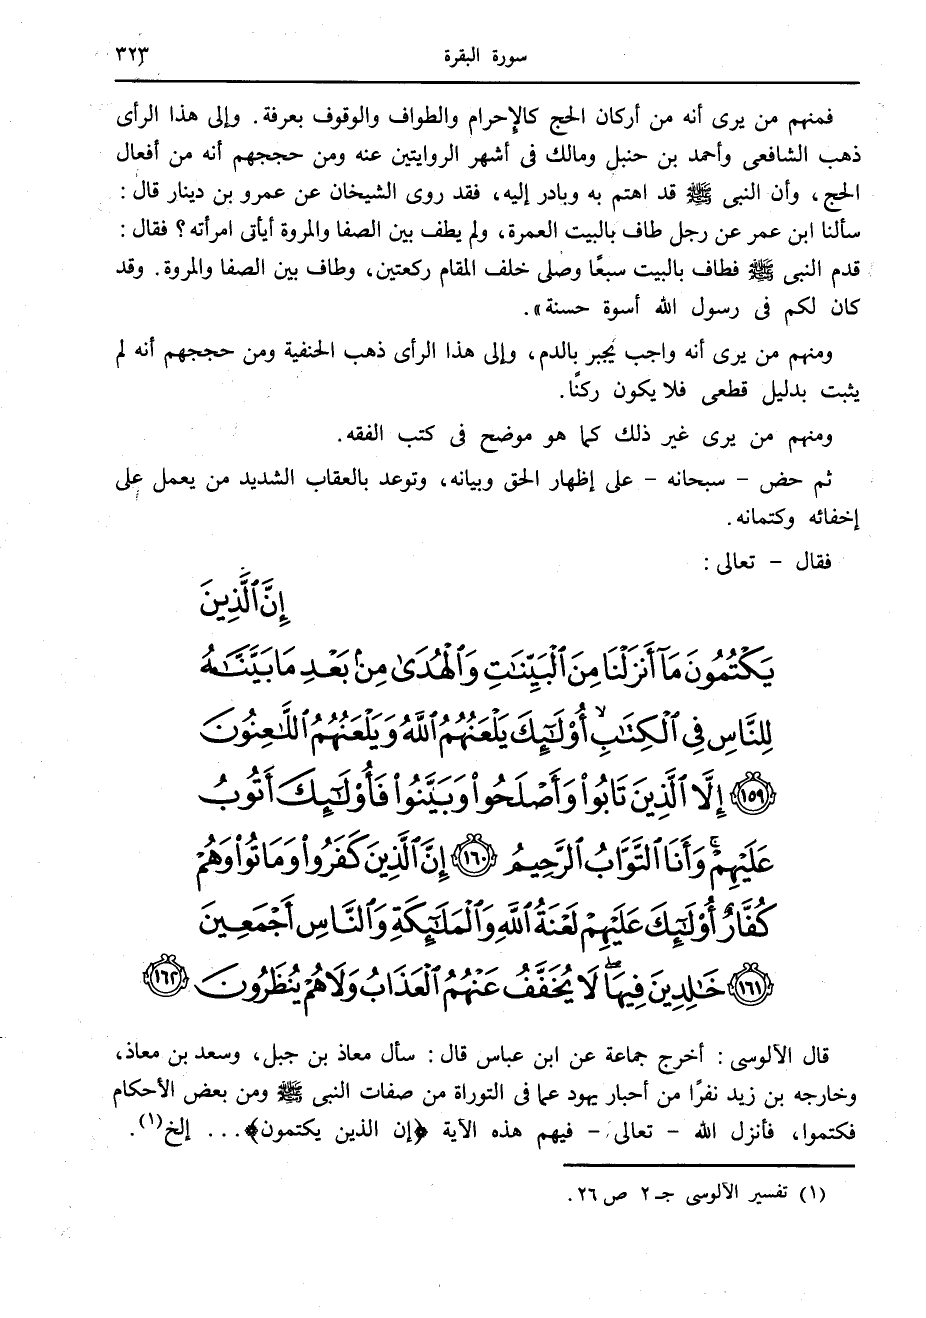 سورة البقرة ٣٢٣
فمنهم من يرى أنه من أركان الحج كالإحرام والطواف والوقوف بعرفة. وإلى هذا الرأى
ذهب الشافعى وأحمد بن حنبل ومالك فى أشهر الروايتين عنه ومن حججهم أنه من أفعال
الحج، وأن النبى ﷺ قد اهتم به وبادر إليه، فقد روى الشيخان عن عمرو بن دينار قال :
سألنا ابن عمر عن رجل طاف بالبيت العمرة، ولم يطف بين الصفا والمروة أيأتى امرأته؟ فقال :
قدم النبى ﷺ فطاف بالبيت سبعًا وصلى خلف المقام ركعتين، وطاف بين الصفا والمروة. وقد
كان لكم فى رسول الله أسوة حسنة».
ومنهم من يرى أنه واجب يُجبر بالدم، وإلى هذا الرأى ذهب الحنفية ومن حججهم أنه لم
يثبت بدليل قطعى فلا يكون ركنًا.
ومنهم من يرى غير ذلك كما هو موضح فى كتب الفقه.
ثم حض – سبحانه – على إظهار الحق وبيانه، وتوعد بالعقاب الشديد من يعمل على
إخفائه وكتمانه.
فقال – تعالى :
إِنَّ ٱلَّذِينَ
يَكْتُمُونَ مَآ أَنزَلْنَا مِنَ ٱلْبَيِّنَٰتِ وَٱلْهُدَىٰ مِنۢ بَعْدِ مَا بَيَّنَّٰهُ
لِلنَّاسِ فِى ٱلْكِتَٰبِ ۙ أُو۟لَٰٓئِكَ يَلْعَنُهُمُ ٱللَّهُ وَيَلْعَنُهُمُ ٱللَّٰعِنُونَ
﴿١٥٩﴾ إِلَّا ٱلَّذِينَ تَابُوا۟ وَأَصْلَحُوا۟ وَبَيَّنُوا۟ فَأُو۟لَٰٓئِكَ أَتُوبُ
عَلَيْهِمْ ۚ وَأَنَا ٱلتَّوَّابُ ٱلرَّحِيمُ ﴿١٦٠﴾ إِنَّ ٱلَّذِينَ كَفَرُوا۟ وَمَاتُوا۟ وَهُمْ
كُفَّارٌ أُو۟لَٰٓئِكَ عَلَيْهِمْ لَعْنَةُ ٱللَّهِ وَٱلْمَلَٰٓئِكَةِ وَٱلنَّاسِ أَجْمَعِينَ
﴿١٦١﴾ خَٰلِدِينَ فِيهَا ۖ لَا يُخَفَّفُ عَنْهُمُ ٱلْعَذَابُ وَلَا هُمْ يُنظَرُونَ ﴿١٦٢﴾
قال الآلوسى : أخرج جماعة عن ابن عباس قال : سأل معاذ بن جبل، وسعد بن معاذ،
وخارجه بن زيد نفرًا من أحبار يهود عما فى التوراة من صفات النبى ﷺ ومن بعض الأحكام
فكتموا، فأنزل الله – تعالى – فيهم هذه الآية ﴿إن الذين يكتمون﴾... إلخ(١).
(١) تفسير الآلوسى جـ ٢ ص ٢٦.